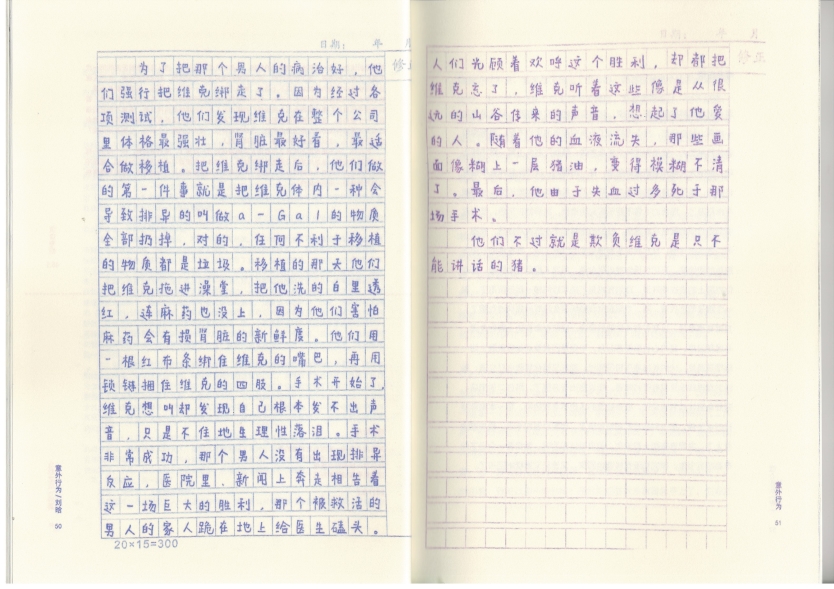 日期： 年 月
为了把那个男人的病治好，他
们强行把维克绑走了。因为经过各
项测试，他们发现维克在整个公司
里体格最强壮，肾脏最好看，最适
合做移植。把维克绑走后，他们做
的第一件事就是把维克体内一种会
导致排异的叫做a-Gal的物质
全部扔掉，对的，任何不利于移植
的物质都是垃圾。移植的那天他们
把维克拖进澡堂，把他洗的白里透
红，连麻药也没上，因为他们害怕
麻药会有损肾脏的新鲜度。他们用
一根红布条绑住维克的嘴巴，再用
锁链捆住维克的四肢。手术开始了，
维克想叫却发现自己根本发不出声
音，只是不住地生理性落泪。手术
非常成功，那个男人没有出现排异
反应，医院里、新闻上奔走相告着
这一场巨大的胜利，那个被救活的
男人的家人跪在地上给医生磕头。
20×15=300
意外行为/刘晗
50
年 月
人们光顾着欢呼这个胜利，却都把
维克忘了，维克听着这些像是从很
远的山谷传来的声音，想起了他爱
的人。随着他的血液流失，那些画
面像糊上一层猪油，变得模糊不清
了。最后，他由于失血过多死于那
场手术。
他们不过就是欺负维克是只不
能讲话的猪。
意外行为
51